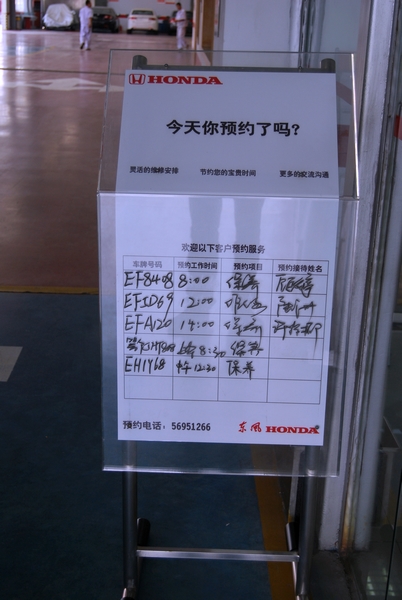 HONDA
今天你预约了吗?
灵活的维修安排 节约您的宝贵时间 更多的交流沟通
欢迎以下客户预约服务
车牌号码 预约工作时间 预约项目 预约接待姓名
EF8408 8:00 保养
EFID69 12:00
EFA120 14:00
8:30 保养
EH1468 中午12:30 保养
预约电话: 56951266 东风 HONDA